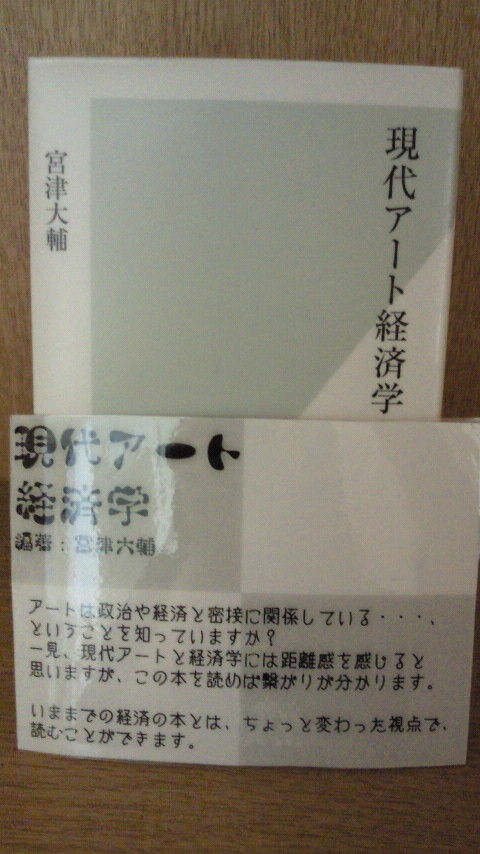 現代アート経済学
宮津大輔
現代アート
経済学
編著：宮津大輔
アートは政治や経済と密接に関係している・・・、
ということを知っていますか？
一見、現代アートと経済学には距離感を感じると
思いますが、この本を読めば繋がりが分かります。
いままでの経済の本とは、ちょっと変わった視点で、
読むことができます。